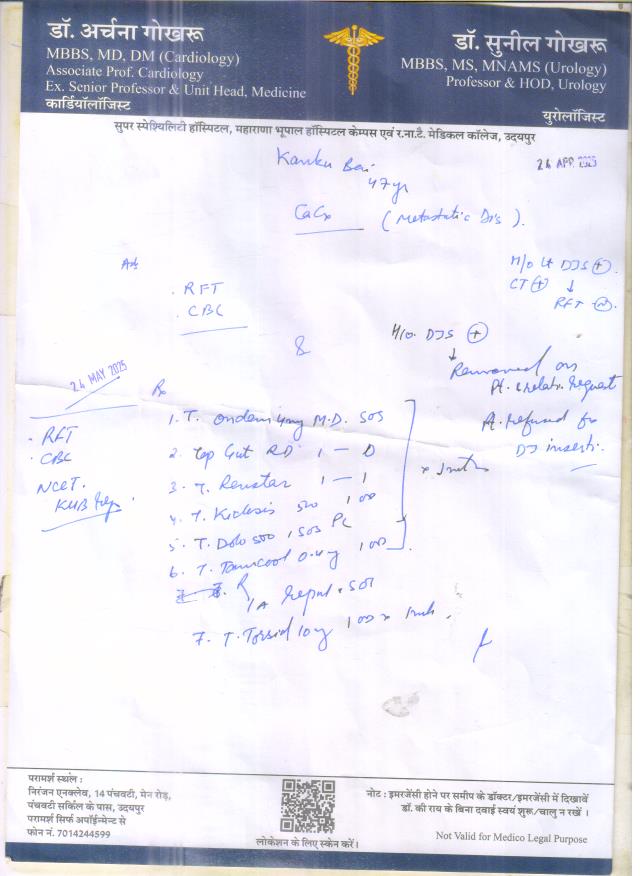 डॉ. अर्चना गोखरू
MBBS, MD, DM (Cardiology)
Associate Prof. Cardiology
Ex. Senior Professor & Unit Head, Medicine
कार्डियॉलॉजिस्ट
डॉ. सुनील गोखरू
MBBS, MS, MNAMS (Urology)
Professor & HOD, Urology
युरोलॉजिस्ट
सुपर स्पेश्यिलिटी हॉस्पिटल, महाराणा भूपाल हॉस्पिटल केम्पस एवं र.ना.टै. मेडिकल कॉलेज, उदयपुर
Kanku Bai
47 yr
24 APR 2025
CaCx (Metastatic Dis).
Adv
. RFT
. CBC
H/o Lt DJS (+)
CT (+) ↓
RFT (N)
&
H/o. DJS (+)
↓
Removed on
Pt. & relativ. request
Pt. refused for
DJ inserti.
24 MAY 2025
. RFT
. CBC
NCCT.
KUB
Rx
1. T. Ondem 4mg M.D. SOS
2. Cap Gut RD 1 — 0
3. T. Renstar 1 — 1
4. T. 500 1 OD
5. T. Dolo 500 1 SOS PC
6. T. 0.4mg 1 OD
SOS
7. T. Torsid 10mg 1 OD x
परामर्श स्थल :
निरंजन एनक्लेव, 14 पंचवटी, मेन रोड़,
पंचवटी सर्किल के पास, उदयपुर
परामर्श सिर्फ अपॉईन्मेन्ट से
फोन नं. 7014244599
लोकेशन के लिए स्केन करें।
नोट : इमरजेंसी होने पर समीप के डॉक्टर/इमरजेंसी में दिखावें
डॉ. की राय के बिना दवाई स्वयं शुरू/चालु न रखें ।
Not Valid for Medico Legal Purpose